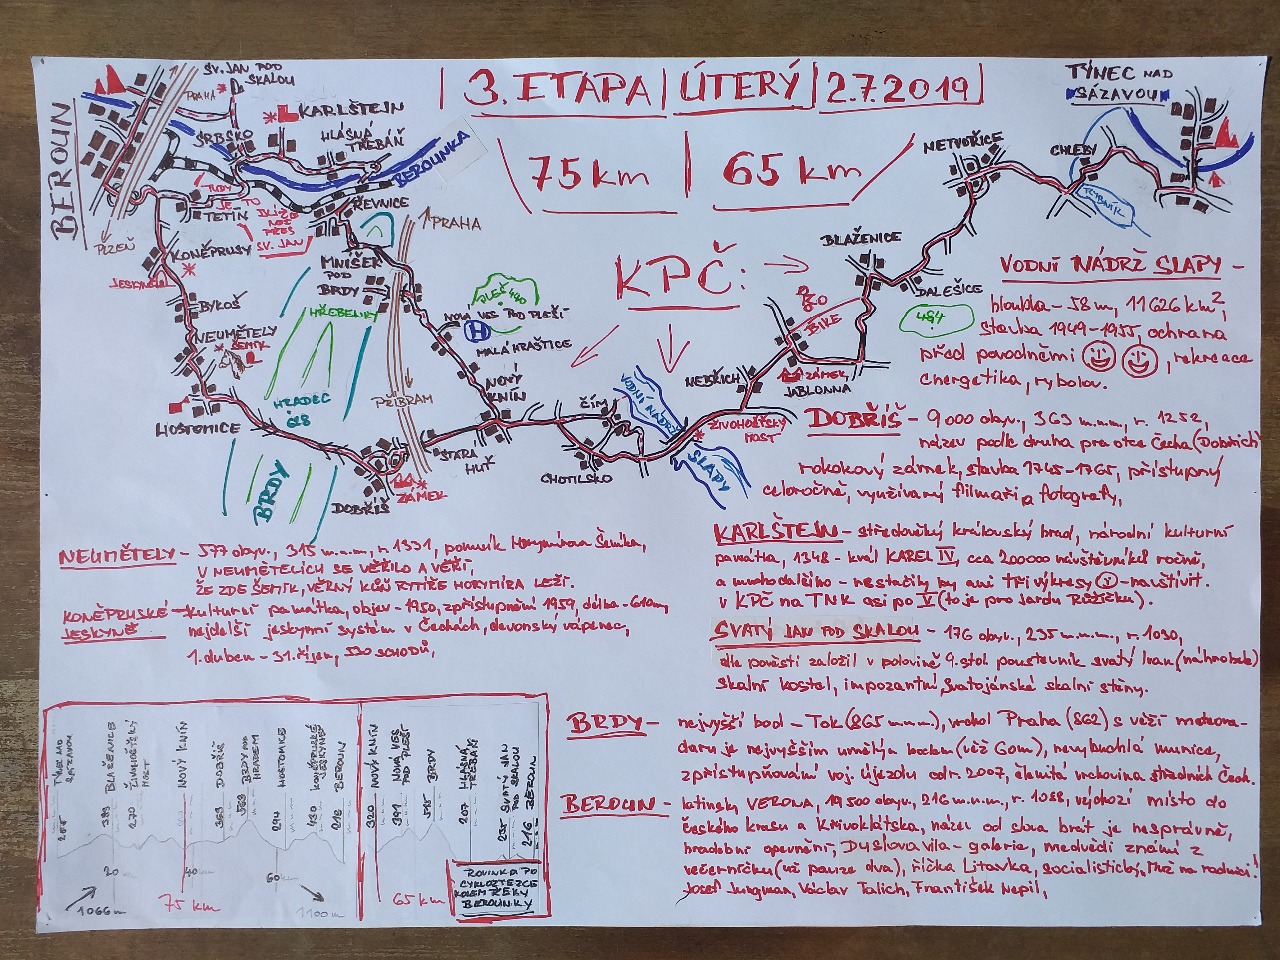 3. ETAPA | ÚTERÝ | 2.7.2019
75 km | 65 km
KPČ:
BEROUN
PRAHA
SV. JAN POD
SKALOU
KARLŠTEJN
SRBSKO
HLÁSNÁ
TŘEBÁŇ
BEROUNKA
ŘEVNICE
TETÍN
TUDY
JE TO
BLÍŽE
NEŽ
PŘES
SV. JAN
PLZEŇ
KONĚPRUSY
JESKYNĚ
BYKOŠ
NEUMĚTELY
ŠEMÍK
HOSTOMICE
MNÍŠEK
POD
BRDY
HŘEBENY
HRADEC
628
BRDY
PRAHA
PŘÍBRAM
PLEŠ 490
NOVÁ VES POD PLEŠÍ
H
MALÁ HRAŠTICE
NOVÝ
KNÍN
STARÁ
HUŤ
ZÁMEK
DOBŘÍŠ
ČÍM
CHOTILSKO
VODNÍ NÁDRŽ
SLAPY
ŽIVOHOŠŤSKÝ
MOST
NEBŘICH
ZÁMEK
JABLONNA
BIKE
BLAŽENICE
DALEŠICE
484
NETVOŘICE
CHLEBY
RYBNÍK
TÝNEC NAD
SÁZAVOU
VODNÍ NÁDRŽ SLAPY -
hloubka - 58 m, 11626 km²,
stavba 1949-1955, ochrana
před povodněmi, rekreace
energetika, rybolov.
DOBŘÍŠ - 9000 obyv., 363 m.n.m., r. 1252,
název podle druha praotce Čecha (Dobřich)
rokokový zámek, stavba 1745-1765, přístupný
celoročně, využívaný filmaři a fotografy,
KARLŠTEJN - středověký královský hrad, národní kulturní
památka, 1348 - král KAREL IV, cca 200000 návštěvníků ročně,
a mnoho dalšího - nestačily by ani tři výkresy - navštívit.
v KPČ na TNK asi po V (to je pro Jardu Růžičku).
SVATÝ JAN POD SKALOU - 176 obyv., 235 m.n.m., r. 1030,
dle pověsti založil v polovině 9. stol. poustevník svatý Ivan (náhrobek)
skalní kostel, impozantní Svatojánské skalní stěny.
BRDY - nejvyšší bod - Tok (865 m.n.m), vrchol Praha (862) s věží meteora-
daru je nejvyšším umělým bodem (věž 60m), nevybuchlá munice,
zpřístupňování voj. újezdu od r. 2007, členitá vrchovina středních Čech.
BEROUN - latinsky VERONA, 19500 obyv., 216 m.n.m., r. 1088, výchozí místo do
českého krasu a Křivoklátska, název od slova brát je nesprávné,
hradební opevnění, Duslova vila - galerie, medvědi známí z
večerníčku (už pouze dva), říčka Litavka, socialistický Muž na radnici!
Josef Jungman, Václav Talich, František Nepil,
NEUMĚTELY - 577 obyv., 315 m.n.m, r. 1331, pomník Horymírova Šemíka,
V NEUMĚTELÍCH SE VĚŘILO A VĚŘÍ,
ŽE ZDE ŠEMÍK, VĚRNÝ KŮŇ RYTÍŘE HORYMÍRA LEŽÍ.
KONĚPRUSKÉ - kulturní památka, objev - 1950, zpřístupnění 1959, délka - 610m,
JESKYNĚ
nejdelší jeskynní systém v Čechách, devonský vápenec,
1. duben - 31. říjen, 530 SCHODŮ,
TÝNEC NAD
SÁZAVOU
389 BLAŽENICE
270 ŽIVOHOŠŤSKÝ
MOST
NOVÝ KNÍN
363 DOBŘÍŠ
563 BRDY POD
HRADCEM
294 HOSTOMICE
430 KONĚPRUSKÉ
JESKYNĚ
216 BEROUN
320 NOVÝ KNÍN
391 NOVÁ VES
POD PLEŠÍ
515 BRDY
207 HLÁSNÁ
TŘEBÁŇ
235 SVATÝ JAN
POD SKALOU
216 BEROUN
20
40
60
1066m
75 km
1100m
65 km
ROVINKA PO
CYKLOSTEZCE
KOLEM ŘEKY
BEROUNKY